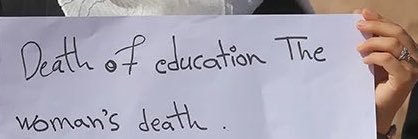 Death of education The
woman's death .